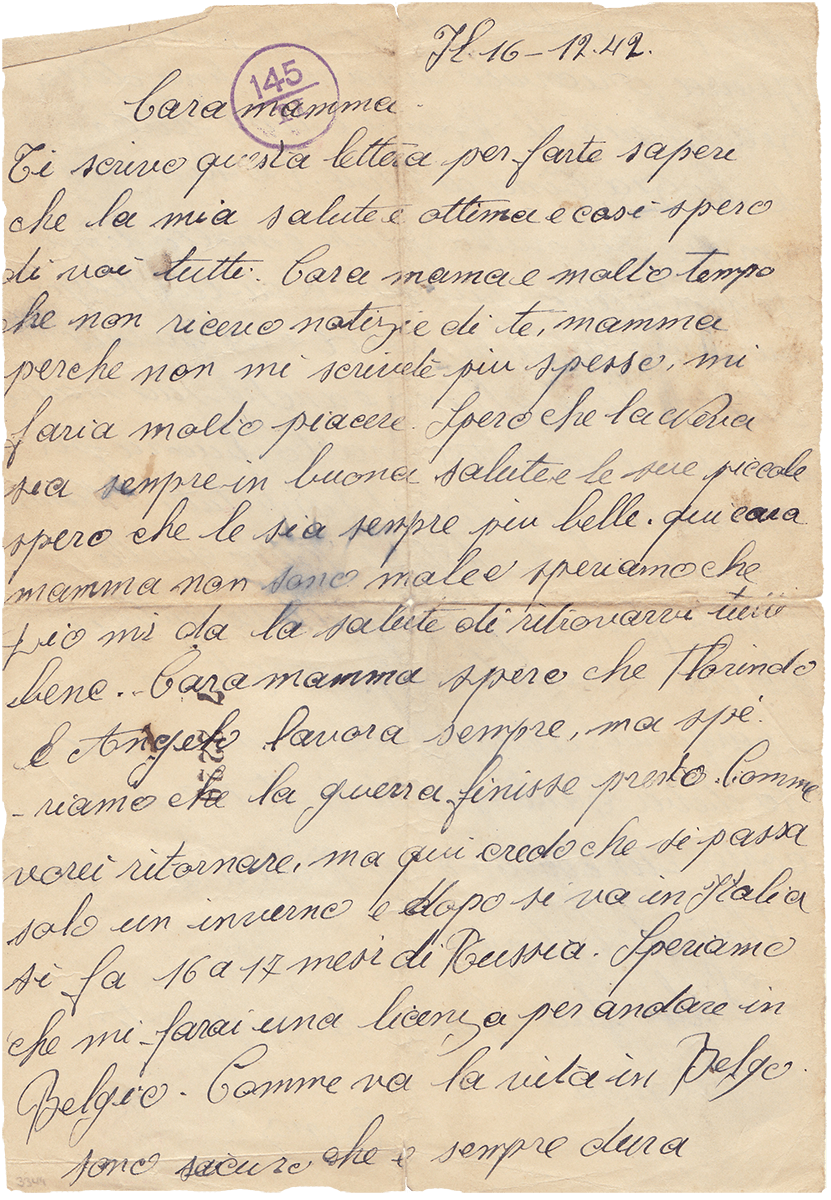 Il 16-12.42.
145
Cara mamma.
Ti scrivo questa lettera per farte sapere
che la mia salute è ottima e cosi spero
di voi tutti. Cara mama e molto tempo
che non ricevo notizie di te, mamma
perche non mi scrivete piu spesso, mi
faria molto piacere. Spero che la Neva
sia senpre in buona salute e le sue piccole
spero che le sia sempre piu belle. qui cara
mamma non sono male e speriamo che
Dio mi da la salute di ritrovarvi tutti
bene. Cara mamma spero che Florindo
e Angelo lavora sempre, ma spe.
-riamo che la guerra finisse presto. Comme
vorei ritornare, ma qui credo che si passa
solo un inverno e dopo si va in Italia
si fa 16 a 17 mesi di Russia. Speriamo
che mi farai una licenza per andare in
Belgio. Comme va la vita in Belgo.
sono sicuro che e sempre dura
3344